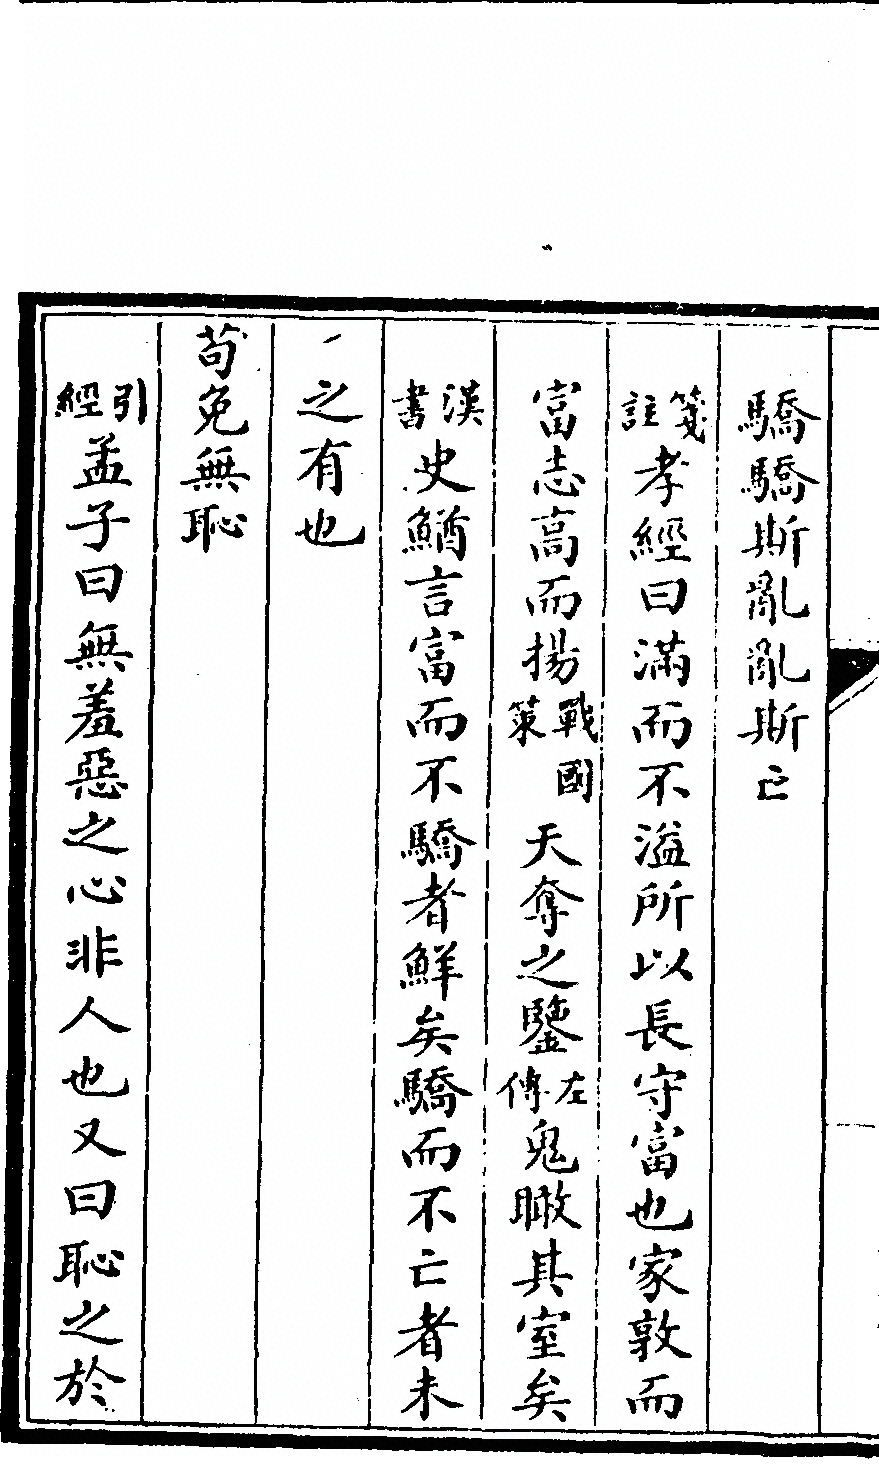 驕驕斯亂亂斯亡
箋註孝經曰滿而不溢所以長守富也家敦而
富志高而揚戰國策天奪之鑒左傳鬼瞰其室矣
漢書史鰌言富而不驕者鮮矣驕而不亡者未
之有也
苟免無恥
引經孟子曰無羞惡之心非人也又曰恥之於